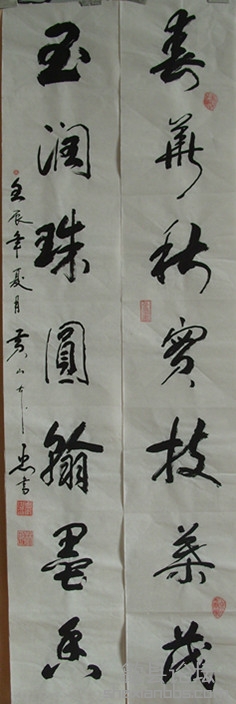 春华秋实枝叶茂
玉润珠圆翰墨香
壬辰年夏月黄山